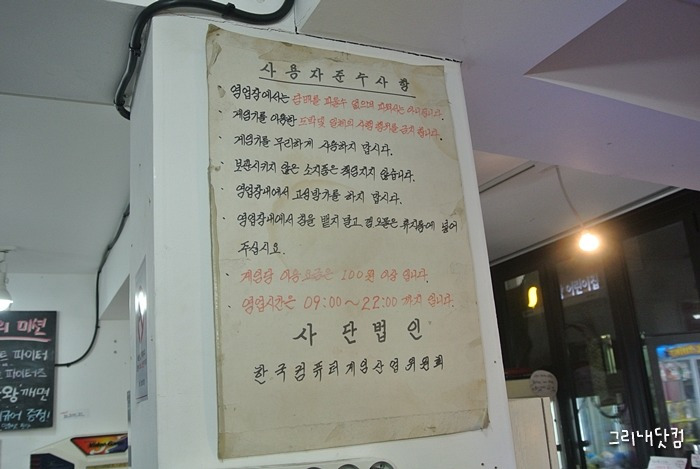 사용자준수사항
영업장에서는 담배를 피울수 없으며 피워서는 아니됩니다.
게임기를 이용한 도박및 일체의 사행행위를 금지 합니다.
· 게임기를 무리하게 사용하지 맙시다.
· 보관시키지 않은 소지품은 책임지지 않습니다.
· 영업장내에서 고성방가를 하지 맙시다.
· 영업장내에서 침을 뱉지 말고 껌,오물은 휴지통에 넣어
주십시요.
· 게임당 이용요금은 100원 이상 입니다.
· 영업시간은 09:00~22:00 까지 입니다.
사단법인
한국컴퓨터게임산업위원회
의 미션
파이터
파이터즈
왕 깨면
규어 증정!
어린이집
그리내닷컴